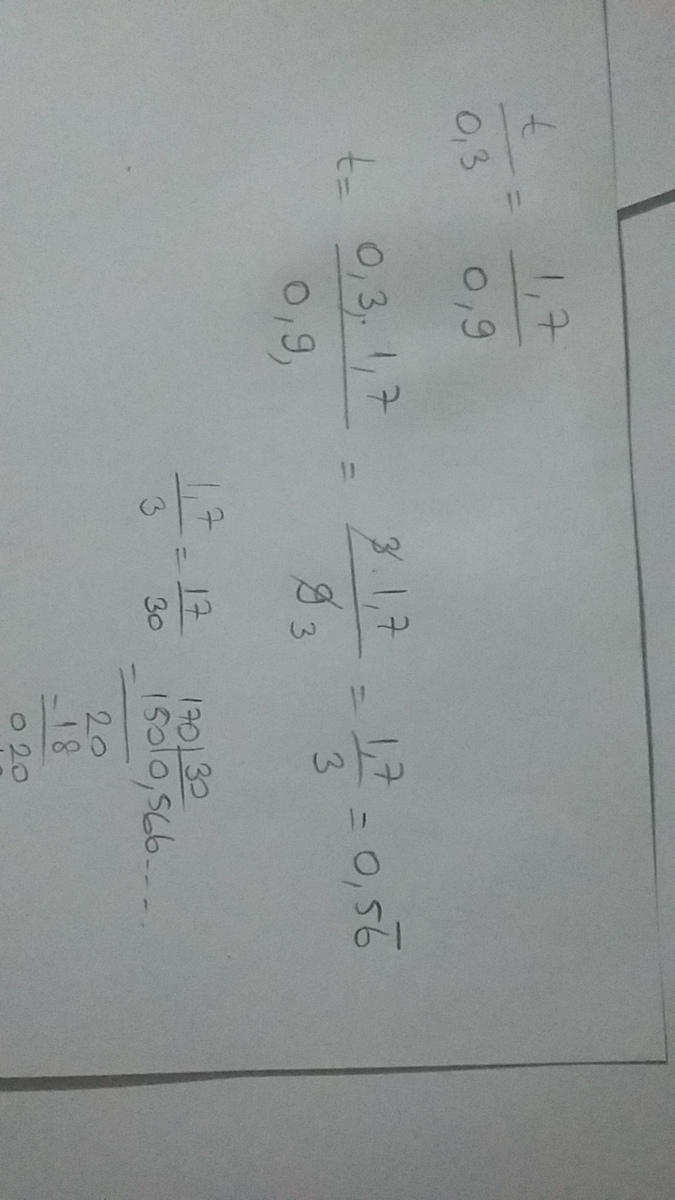 t/0,3 = 1,7/0,9
t = 0,3 . 1,7 / 0,9 = 3 . 1,7 / 9 3 = 1,7/3 = 0,56̅
1,7/3 = 17/30
170 | 30
- 150 | 0,566 - - - .
20
- 18
020